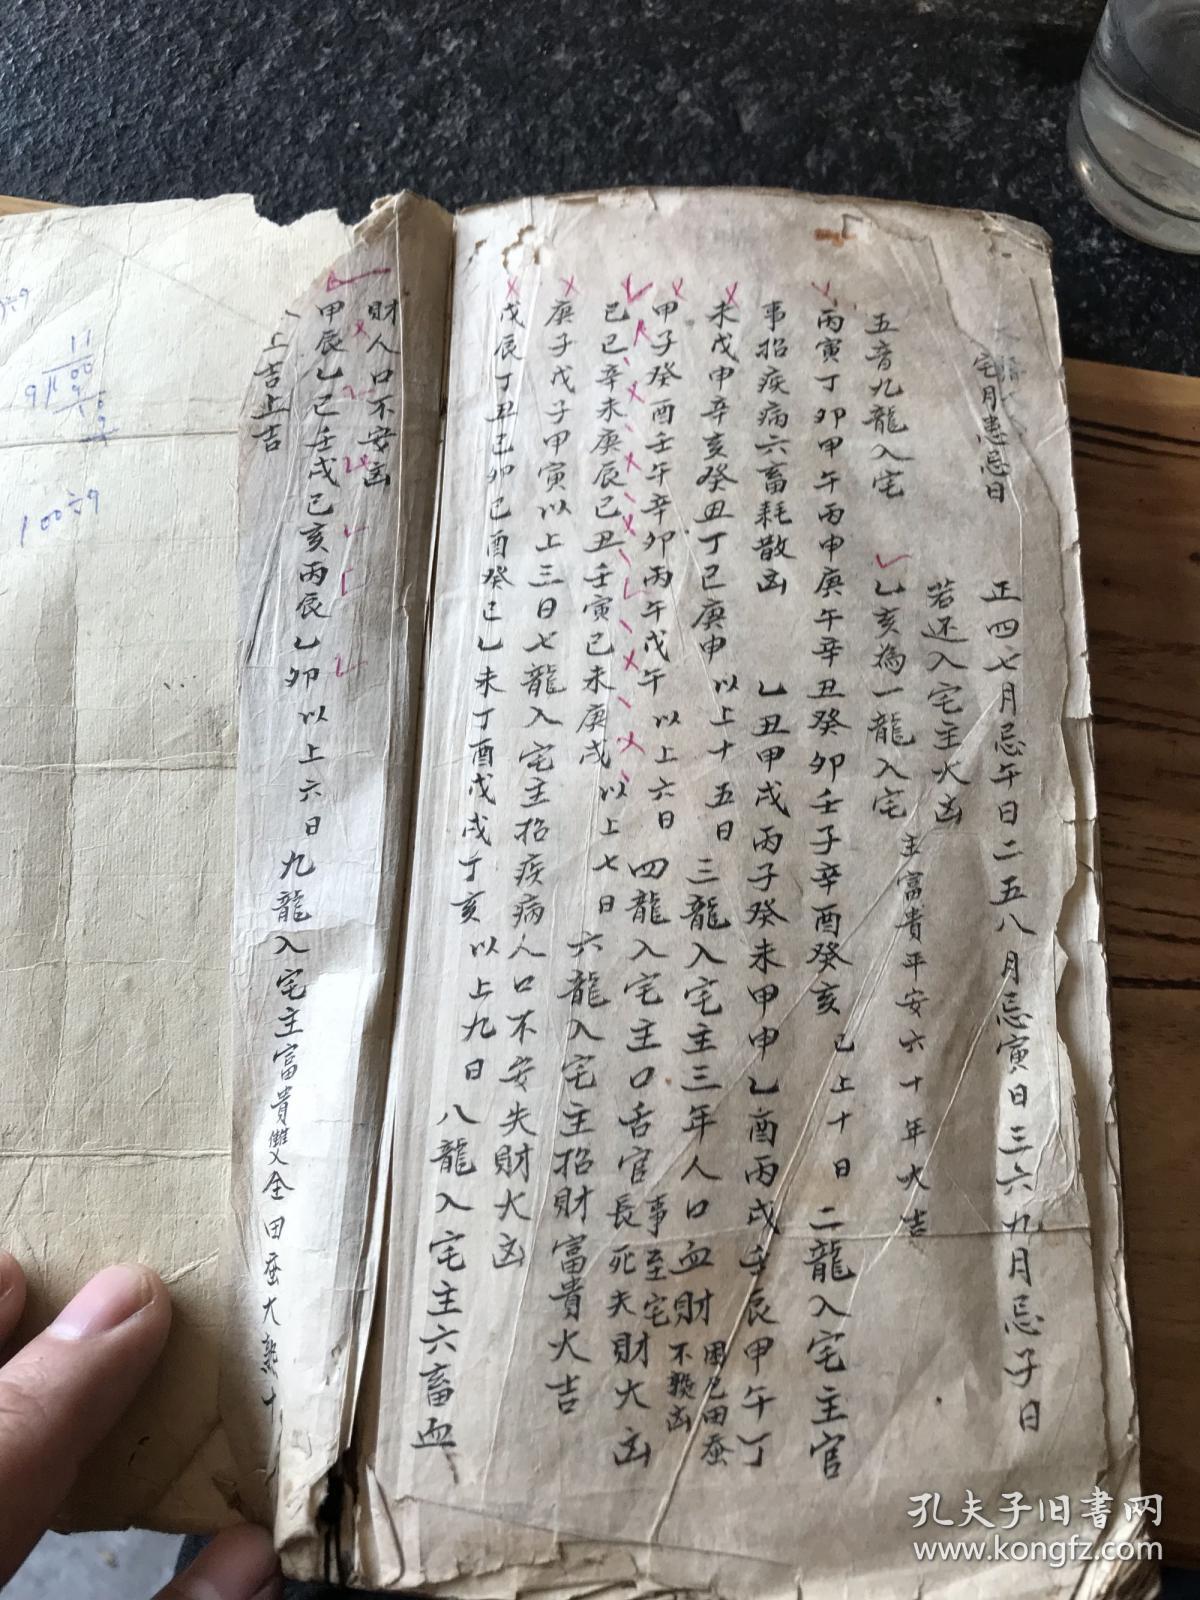 宅月惠忌日 正四七月忌午日二五八月忌寅日三六九月忌子日
若还入宅主大凶
五音九龍入宅 乙亥為一龍入宅 主富貴平安六十年大吉
丙寅丁卯甲午丙申庚午辛丑癸卯壬子辛酉癸亥 已上十日 二龍入宅主官
事招疾病六畜耗散凶 乙丑甲戌丙子癸未甲申乙酉丙戌壬辰甲午丁
未戊申辛亥癸丑丁巳庚申 以上十五日 三龍入宅主三年人口血財 田蚕
不 凶
甲子癸酉壬午辛卯丙午戊午 以上六日 四龍入宅主口舌官事至宅
長死失財大凶
己巳辛未庚辰己丑壬寅己未庚戌 以上七日 六龍入宅主招財富貴大吉
庚子戊子甲寅以上三日七龍入宅主招疾病人口不安失財大凶
戊辰丁丑己卯己酉癸巳乙未丁酉戊戌丁亥 以上九日 八龍入宅主六畜血
財人口不安凶
甲辰乙巳壬戌己亥丙辰乙卯 以上六日 九龍入宅主富貴雙全田蚕大熟十
八上吉上吉
11
100
9
100÷9
孔夫子旧書网
www.kongfz.com